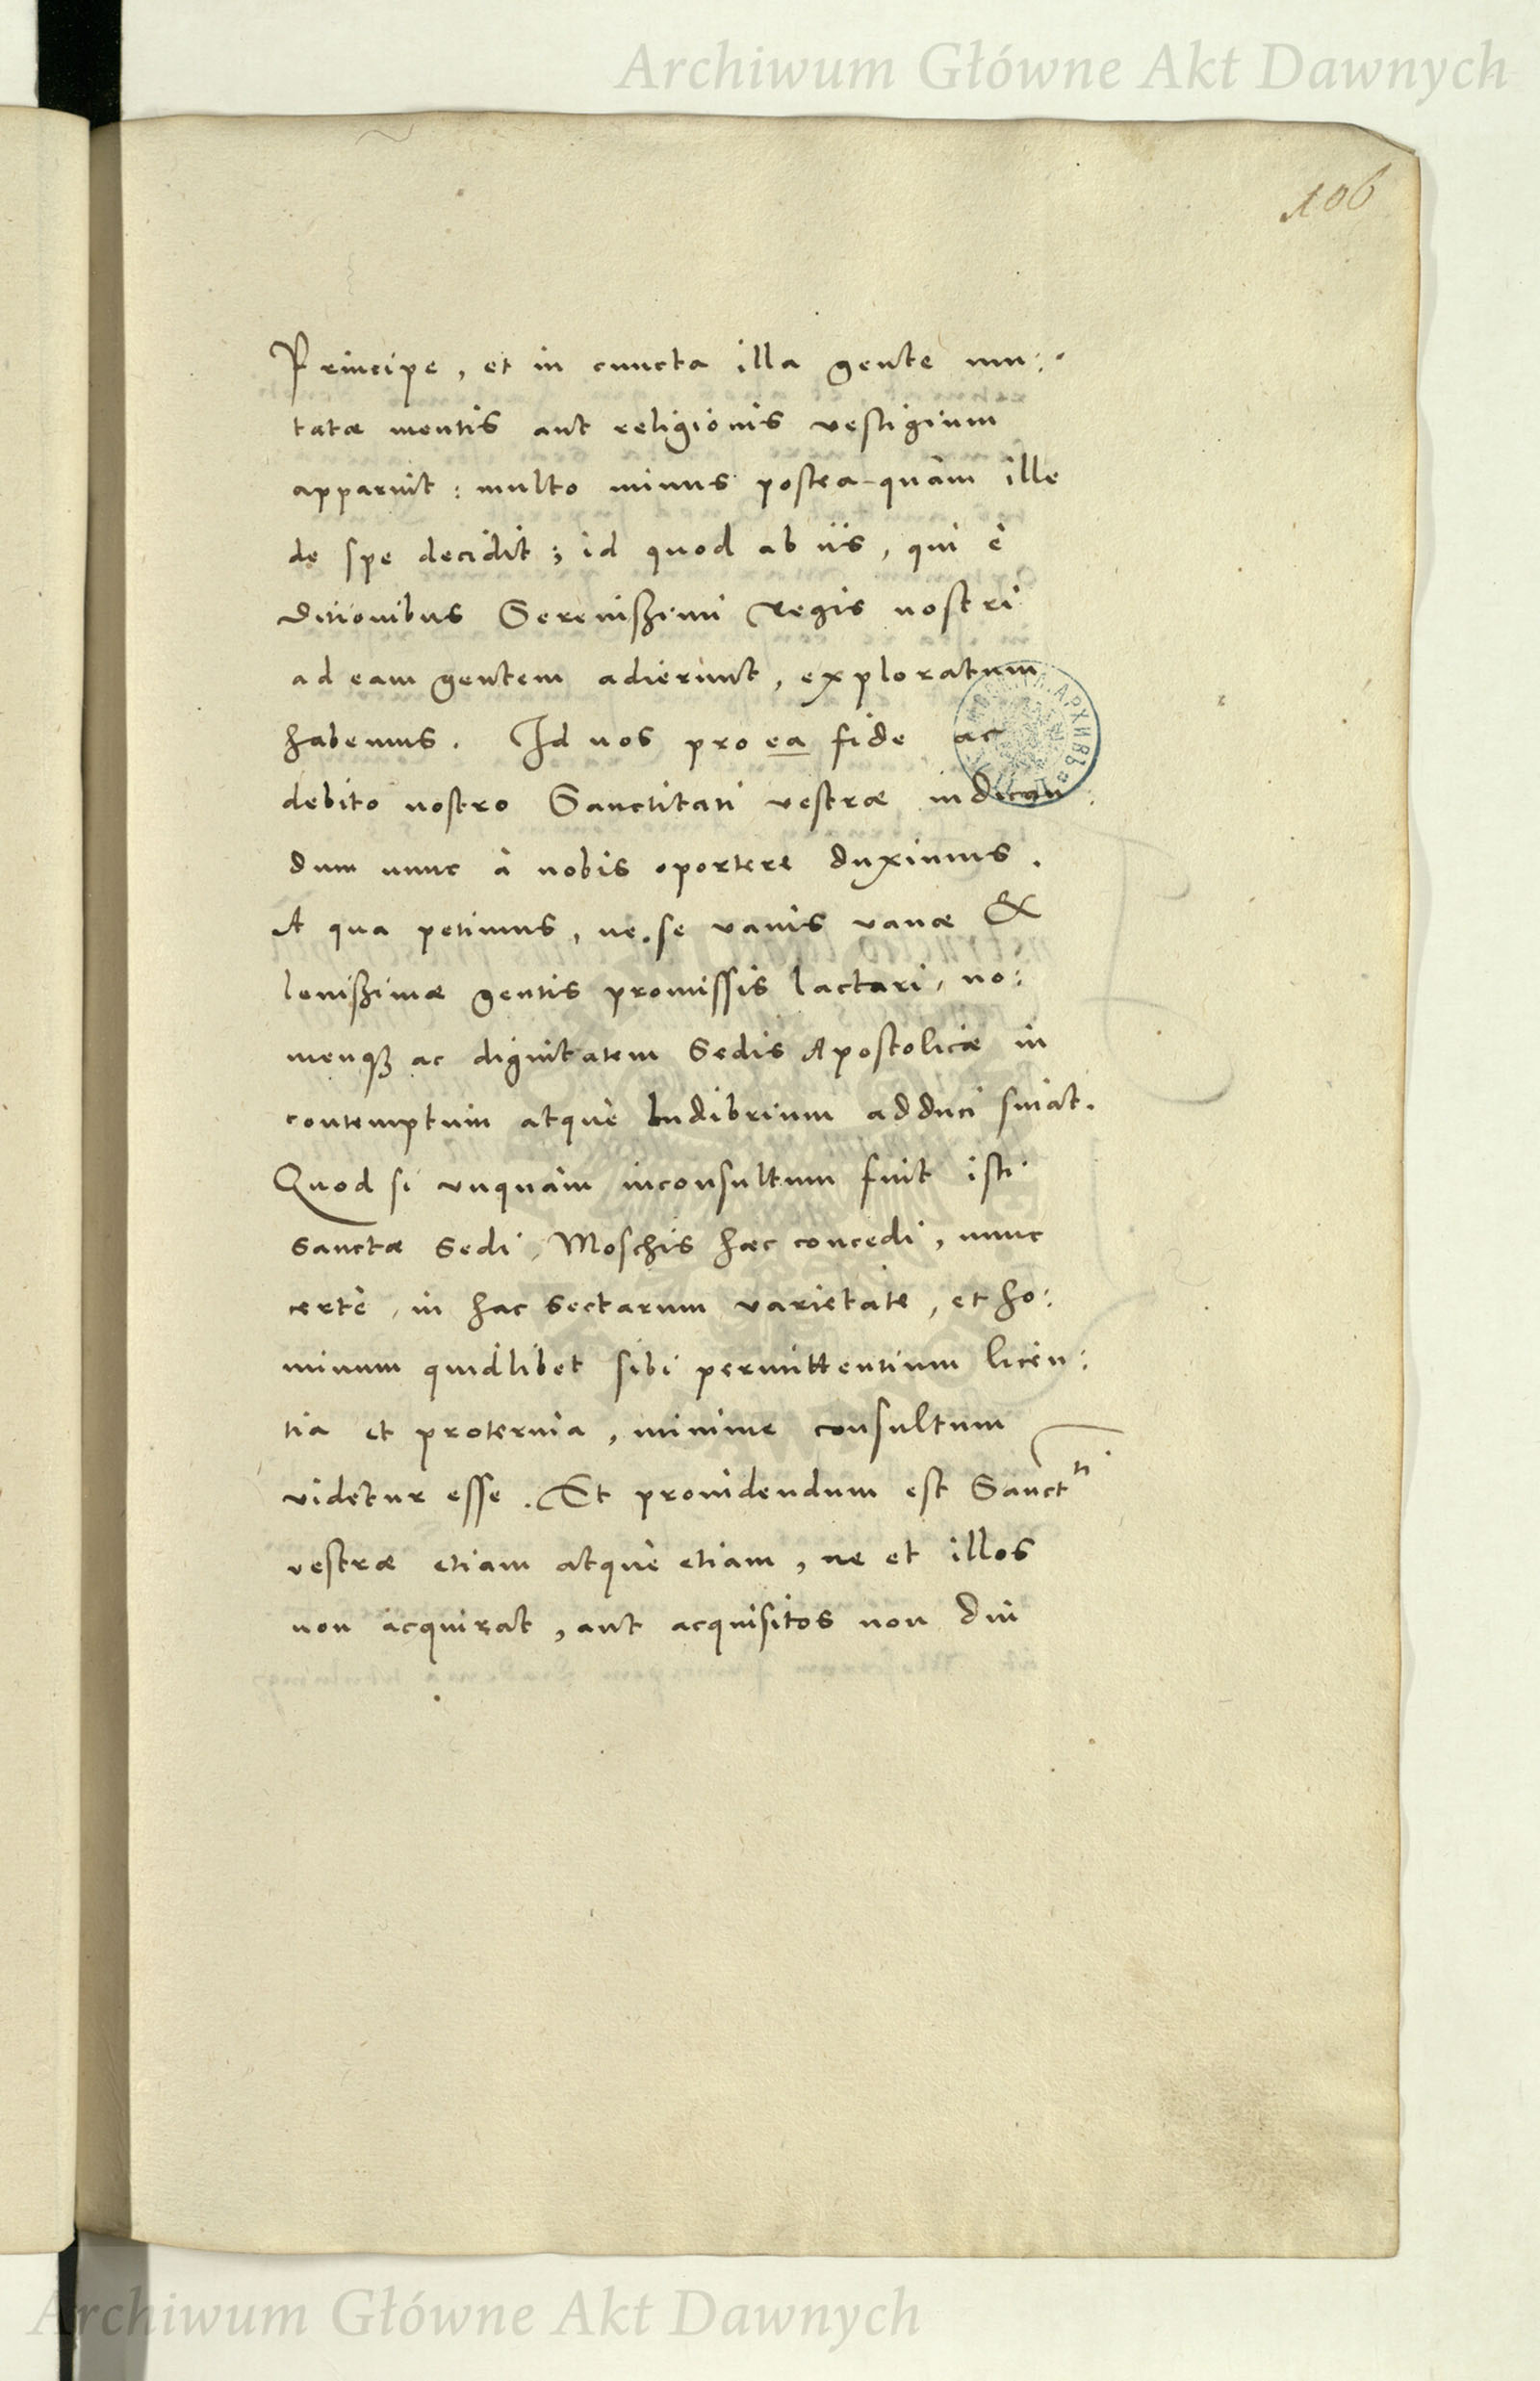 Archiwum Główne Akt Dawnych
106
Principe, et in cuncta illa gente mu:
tatæ mentis aut religionis vestigium
apparuit: multo minus postea quàm ille
de spe decidit; id quod ab iis, qui è
ditionibus Serenißimi Regis nostri
ad eam gentem adierunt, exploratum
habemus. Id nos pro ea fide ac
debito nostro Sanctitati vestræ indican:
dum nunc à nobis oportere duximus.
A qua petimus, ne se vanis vanæ &
leuißimæ gentis promissis lactari, no:
menqȝ ac dignitatem Sedis Apostolicæ in
contemptum atque ludibrium adduci sinat.
Quod si vnquam inconsultum fuit isti
sanctæ Sedi, Moschis hæc concedi, nunc
certè, in hac sectarum varietate, et ho:
minum quidlibet sibi permittentium licen:
tia et proteruia, minime consultum
videtur esse. Et prouidendum est Sanctti
vestræ etiam atque etiam, ne et illos
non acquirat, aut acquisitos non diu
Archiwum Główne Akt Dawnych